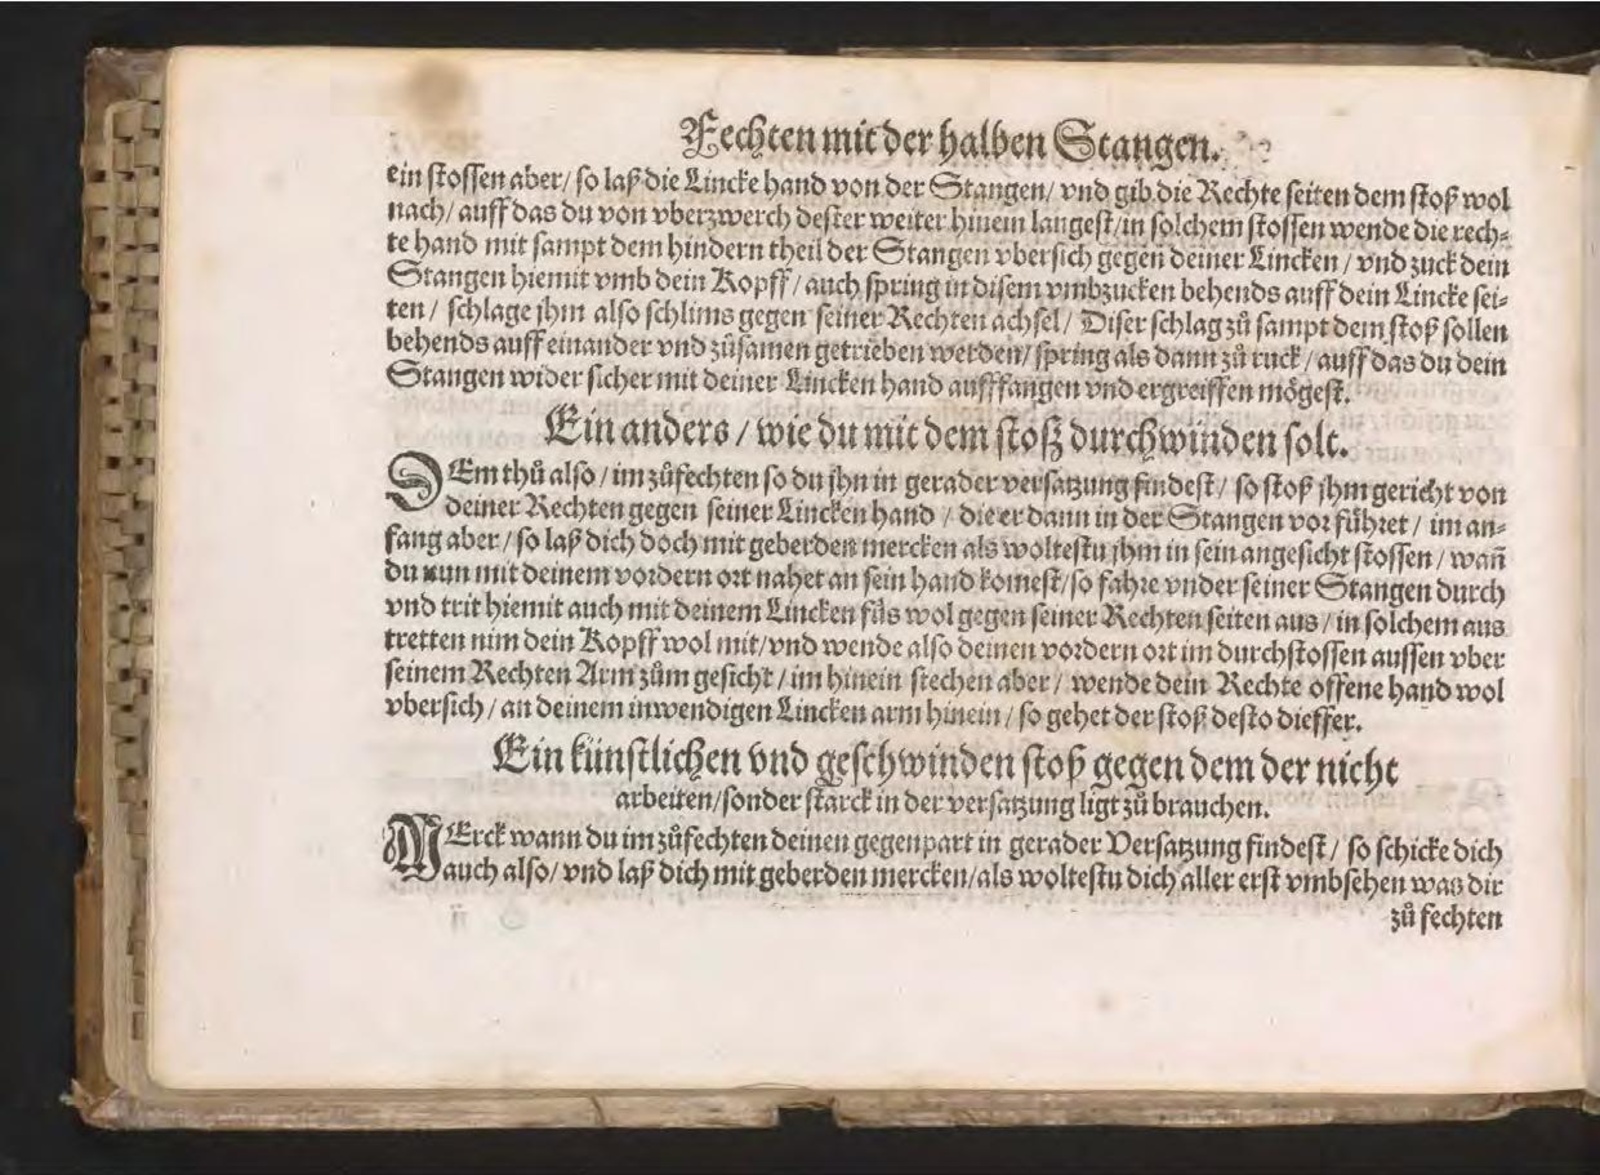 Fechten mit der halben Stangen.
ein stossen aber / so laß die Lincke hand von der Stangen / vnd gib die Rechte seiten dem stoß wol
nach / auff das du von vberzwerch dester weiter hinein langest / in solchem stossen wende die rech⸗
te hand mit sampt dem hindern theil der Stangen vbersich gegen deiner Lincken / vnd zuck dein
Stangen hiemit vmb dein Kopff / auch spring in disem vmbzucken behends auff dein Lincke sei⸗
ten / schlage jhm also schlims gegen seiner Rechten achsel / Diser schlag zů sampt dem stoß sollen
behends auff einander vnd zůsamen getrieben werden / spring als dann zů ruck / auff das du dein
Stangen wider sicher mit deiner Lincken hand aufffangen vnd ergreiffen mögest.
Ein anders / wie du mit dem stoß durchwinden solt.
DEm thů also / im zůfechten so du jhn in gerader versatzung findest / so stoß jhm gericht von
deiner Rechten gegen seiner Lincken hand / die er dann in der Stangen vor führet / im an⸗
fang aber / so laß dich doch mit geberden mercken als woltestu jhm in sein angesicht stossen / wañ
du nun mit deinem vordern ort nahet an sein hand komest / so fahre vnder seiner Stangen durch
vnd trit hiemit auch mit deinem Lincken fůs wol gegen seiner Rechten seiten aus / in solchem aus
tretten nim dein Kopff wol mit / vnd wende also deinen vordern ort im durchstossen aussen vber
seinem Rechten Arm zům gesicht / im hinein stechen aber / wende dein Rechte offene hand wol
vbersich / an deinem inwendigen Lincken arm hinein / so gehet der stoß desto dieffer.
Ein künstlichen vnd geschwinden stoß gegen dem der nicht
arbeiten / sonder starck in der versatzung ligt zů brauchen.
MErck wann du im zůfechten deinen gegenpart in gerader Versatzung findest / so schicke dich
auch also / vnd laß dich mit geberden mercken / als woltestu dich aller erst vmbsehen was dir
zů fechten